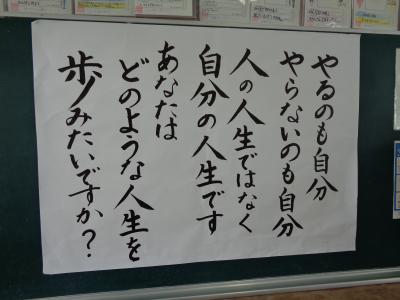 やるのも自分
やらないのも自分
人の人生ではなく
自分の人生です
あなたは
どのような人生を
歩みたいですか？